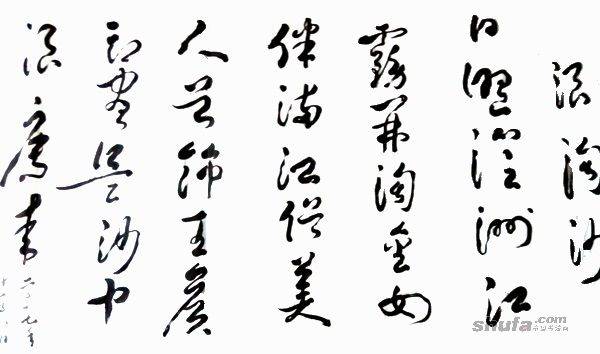 浪淘沙
日照澄洲江
雾开淘金女
伴满江隈美
人首饰王侯
印尽是沙中
浪底来
shufa.com